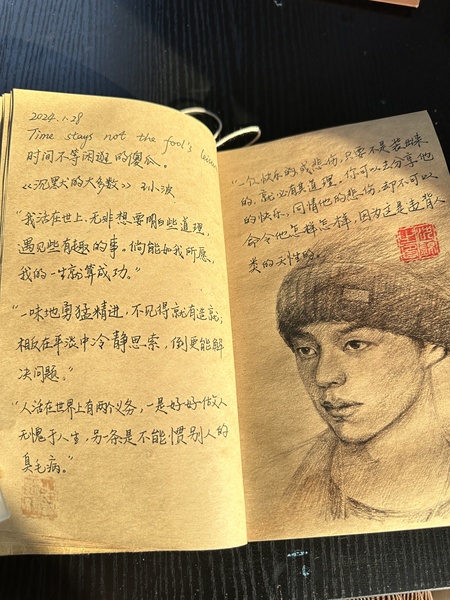 2024.1.28
Time stays not the fool's leisure
时间不等闲逛的傻瓜。
《沉默的大多数》 王小波
“我活在世上，无非想要明白些道理，
遇见些有趣的事。倘能如我所愿，
我的一生就算成功。”
“一味地勇猛精进，不见得就有造就；
相反在平淡中冷静思索，倒更能解
决问题。”
“人活在世界上有两个义务，一是好好做人
无愧于人生，另一条是不能惯别人的
臭毛病。”
“一个人快乐或悲伤，只要不是装出来
的，就必有其道理。你可以去分享他
的快乐，同情他的悲伤，却不可以
命令他怎样怎样，因为这是违背人
类的天性的。”